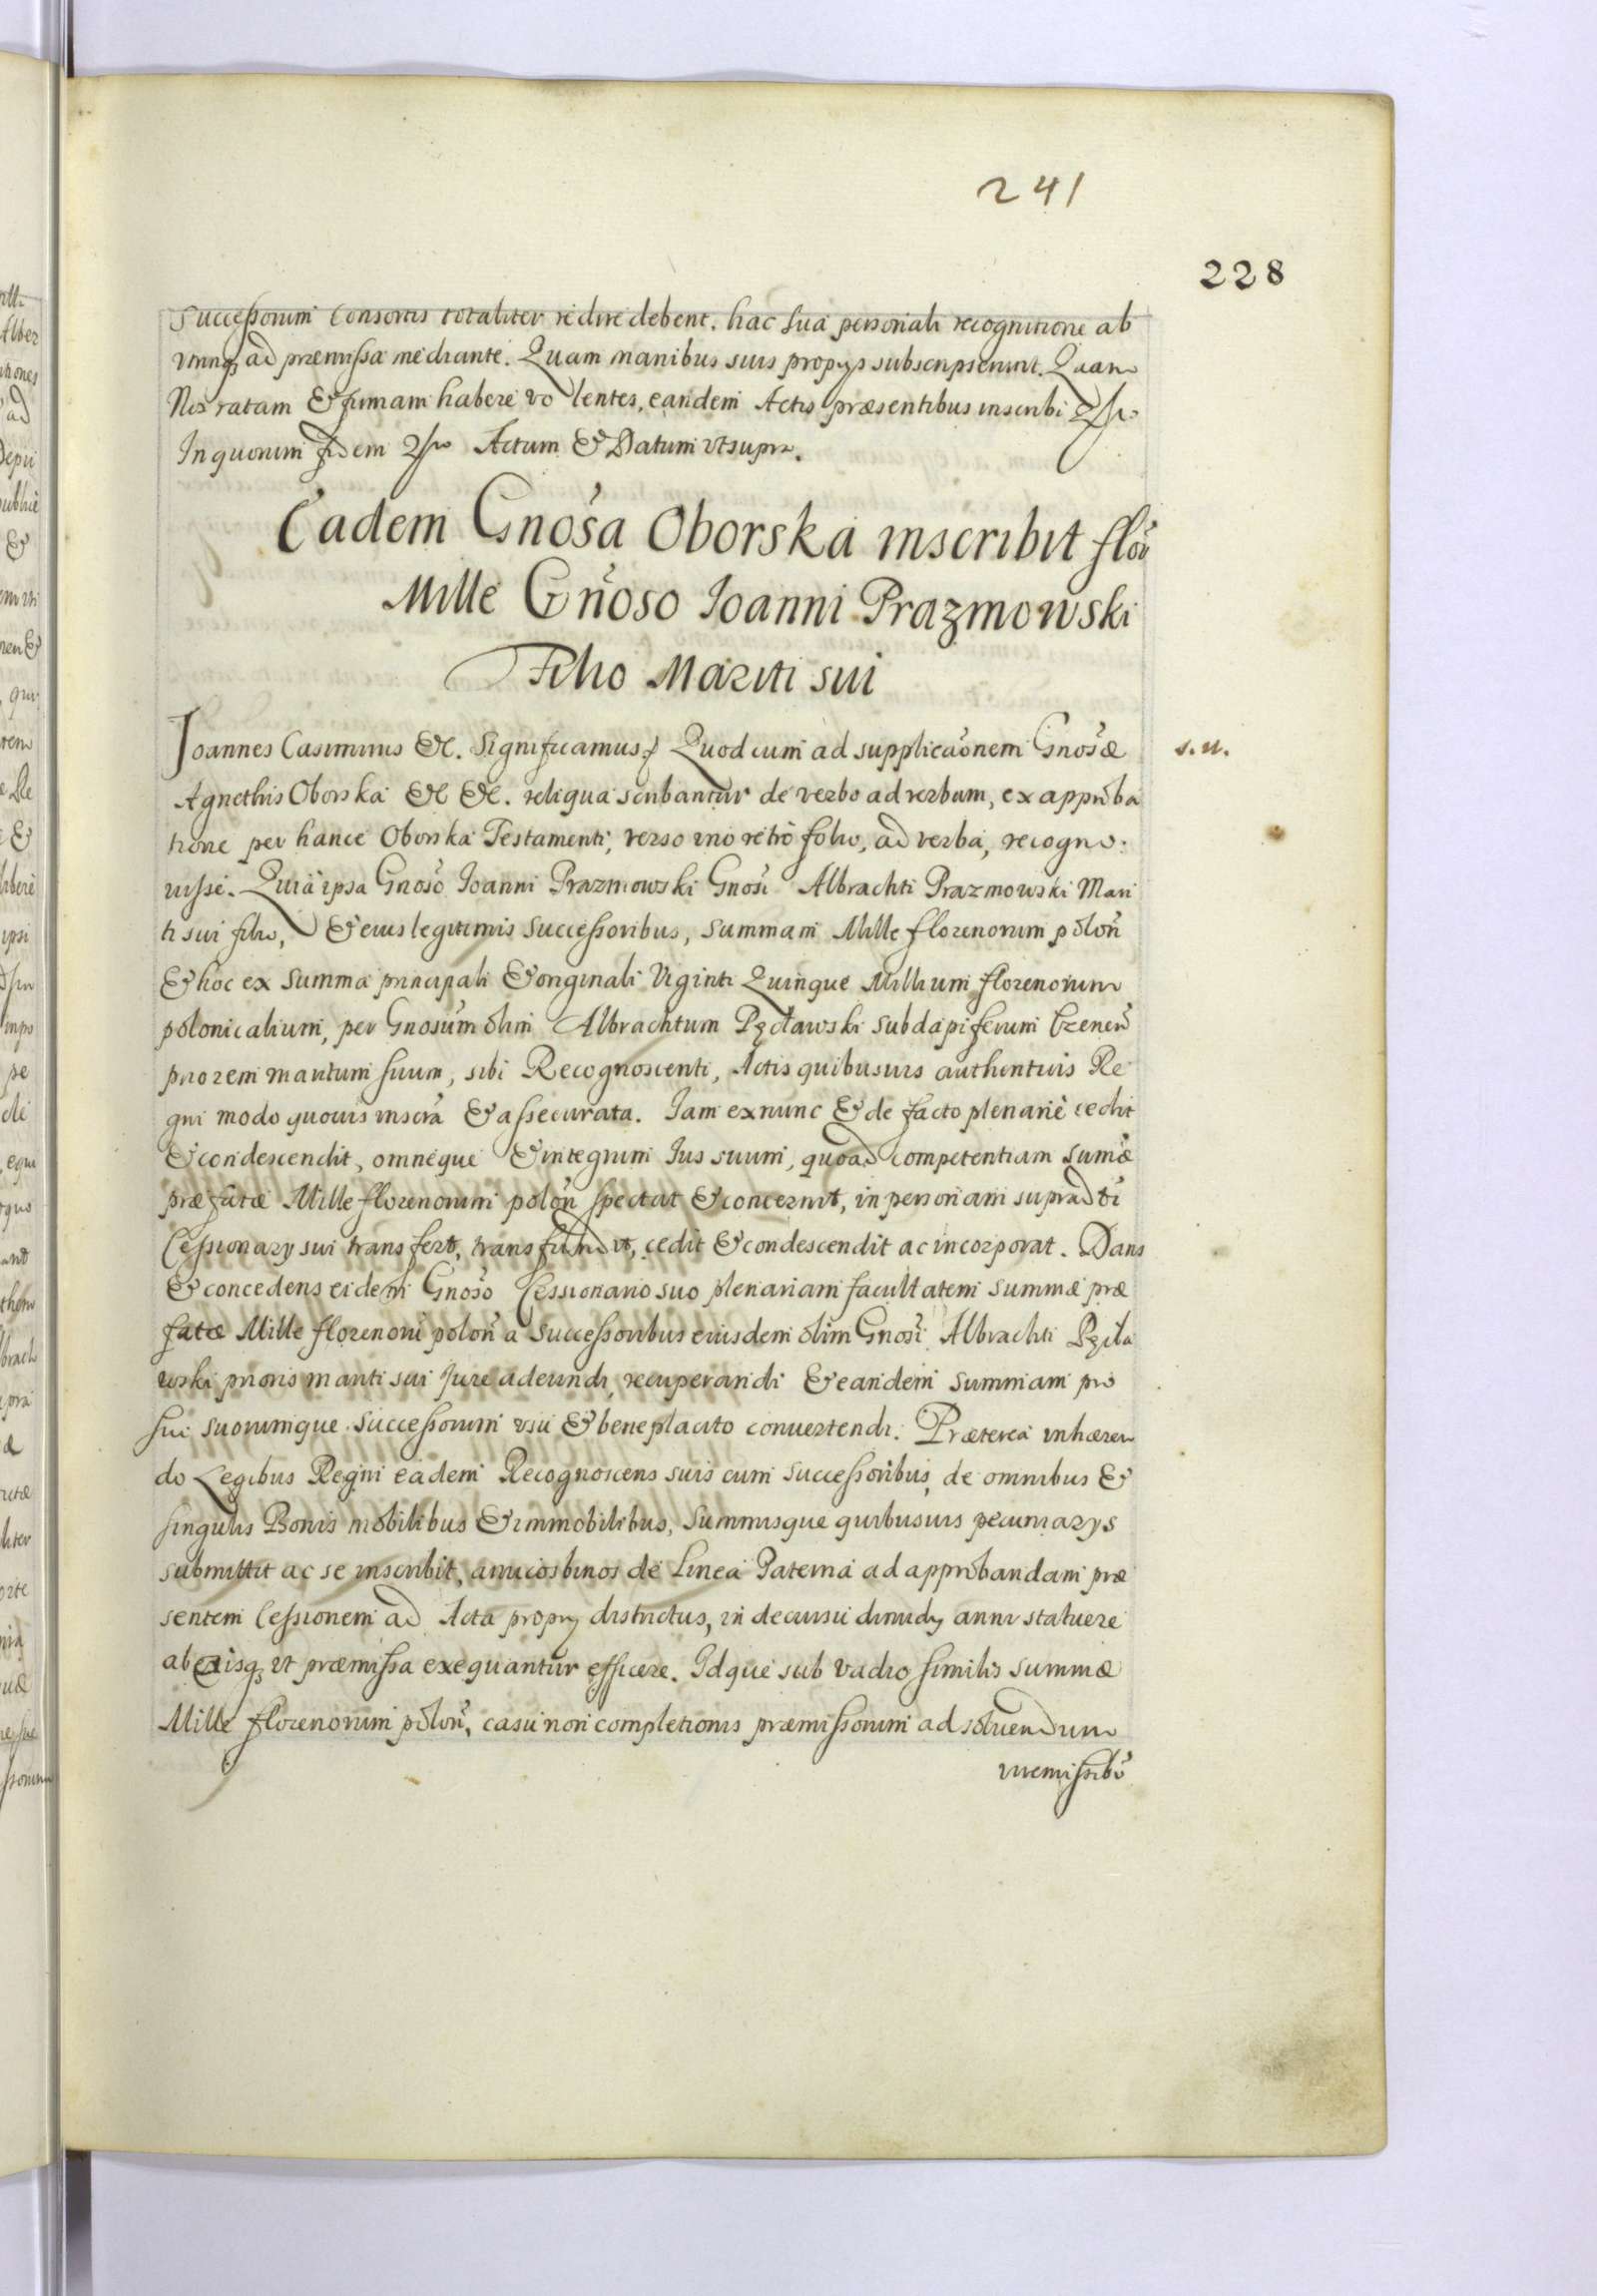 241
228
Successorum Consortis totaliter redire debent. hac sua personali recognitione ab
vtrinq ad præmissa mediante. Quam manibus suis proprys subscripserunt. Quam
Nos ratam & firmam habere volentes, eandem Actis præsentibus inscribi
In quorum fidem Actum & Datum vt supra.
Eadem Gnosa Oborska inscribit flor
Mille Gnoso Ioanni Prazmowski
Filio Mariti sui
Ioannes Casimirus &c. Significamus Quod cum ad supplicaonem Gnosæ
s. n.
Agnethis Oborska &c &c. reliqua scribantur de verbo ad verbum, ex approba
tione per hance Oborska Testamenti, verso vno retro folio, ad verba, recogno-
uisse. Quia ipsa Gnoso Ioanni Prazmowski Gnosi Albrachti Prazmowski Mari
ti sui filio, & eius legitimis successoribus, summam Mille florenorum polon
& hoc ex summa principali & originali Viginti Quinque Millium florenorum
polonicalium, per Gnosum olim Albrachtum Pęcławski subdapiferum Czernen
priorem maritum suum, sibi Recognoscenti, Actis quibusuis authenticis Re
gni modo quouis inscra & assecurata. Iam ex nunc & de facto plenariè cedit
& condescendit, omneque & integrum Ius suum, quoad competentiam sumæ
præfatæ Mille florenorum polon spectat & concernit, in personam supradti
Cessionary sui transfert, transfundit, cedit & condescendit ac incorporat. Dans
& concedens eidem Gnoso Cessionario suo plenariam facultatem summæ præ
fatæ Mille florenoru polon a successoribus eiusdem olim Gnosi Albrachti Pęcła
wski prioris mariti sui Jure adeundi, recuperandi & eandem summam pro
sui suorumque successorum vsu & beneplacito conuertendi. Præterea inhæren
do Legibus Regni eadem Recognoscens suis cum successoribus, de omnibus &
singulis Bonis mobilibus & immobilibus, summisque quibusuis pecuniarys
submittit ac se inscribit, amicos binos de Linea Paterna ad approbandam præ
sentem Cessionem ad Acta propry districtus, in decursu dimidy anni statuere
ab eisq vt præmissa exequantur efficere. Idque sub vadio similis summæ
Mille florenorum polon, casu non completionis præmissorum ad soluendum
irremissib